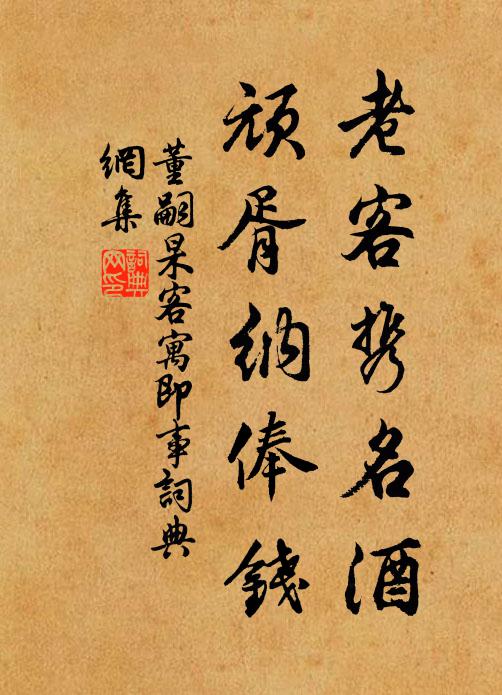 老客携名酒
顽胥纳俸錢
董嗣杲客寓即事詞典
網集
詞典
网印